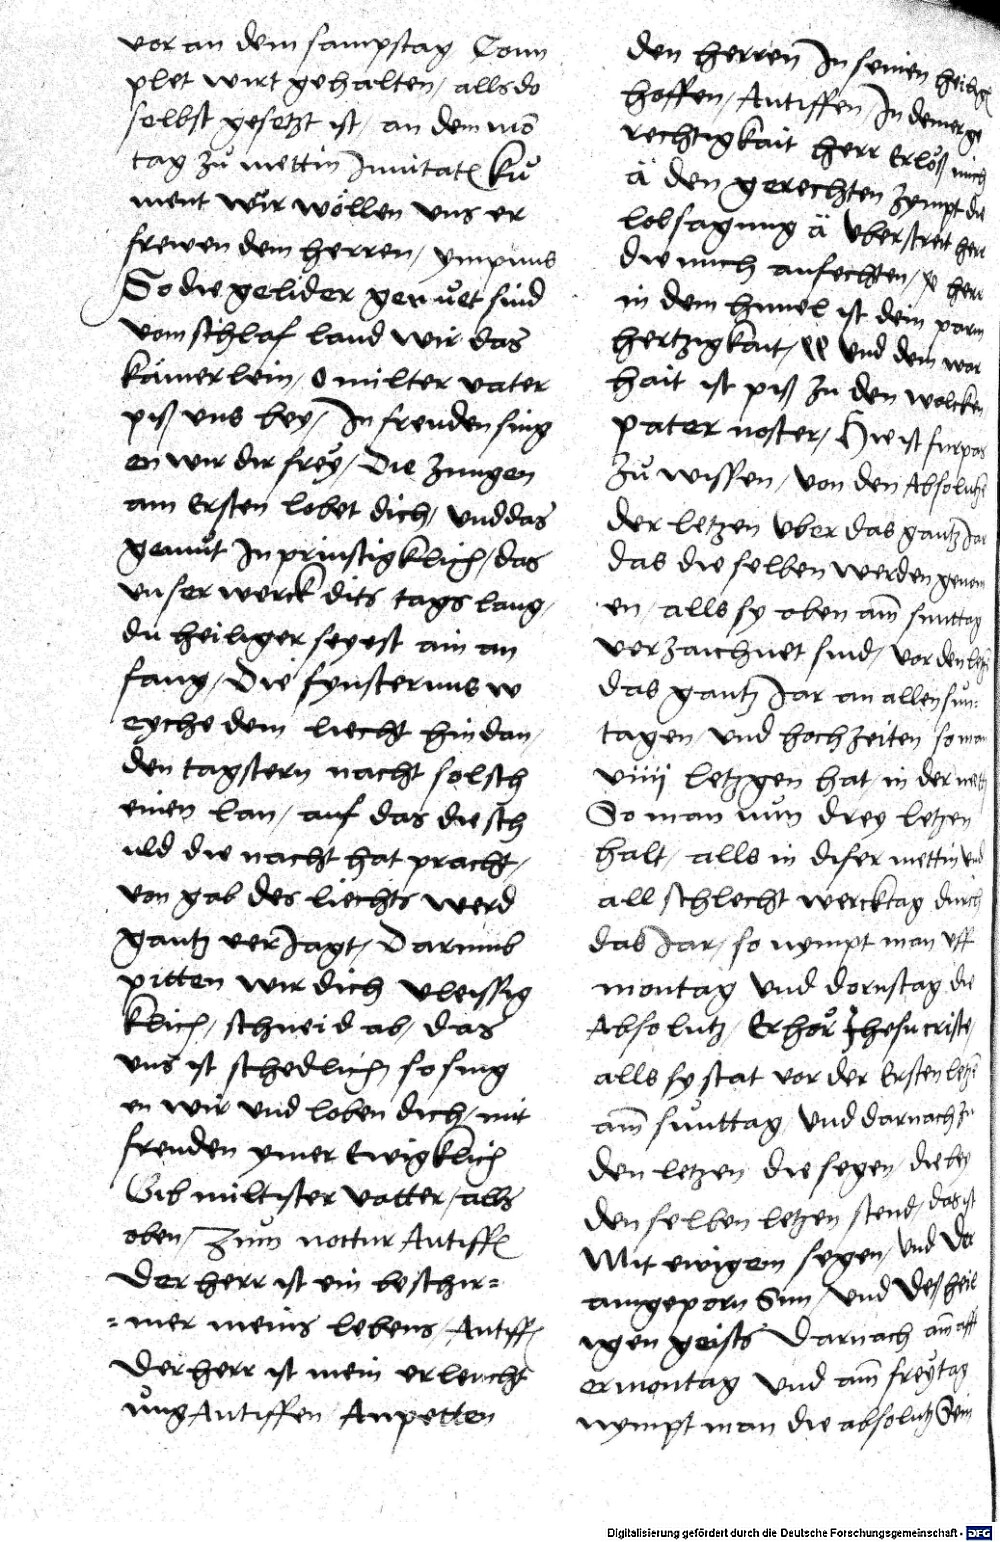 vor an dem sampstag Com
plet wirt gehalten / alls do
selbst gesetzt ist / an dem mō
tag zů mettin Inuitat Ku
ment wir wöllen vns er
frewen dem herren / ympnus
So die gelider gerůet sind
vom schlaf land wir das
kämerlein / O milter vater
piß vns bey / In freuden sing
en wir dir frey / Die zungen
am Ersten lobet dich / vnd das
gemůt Inprinstigklich / das
vnser werck dits tags lang /
du heiliger seyest ain an
fang / Die fynsternus w
eyche dem liecht hindan /
den tagstern nacht sol sch
einen lan / auf das die sch
uld die nacht hat pracht /
von gab des liechts werd
gantz verJagt / Darumb
pitten wir dich vleissig
klich / schneid ab / das
vns ist schedlich so sing
en wir vnd loben dich / mit
freuden ymer Ewigklich
Gib miltister vatter / alls
oben / Zum nottur Antiff
Der herr ist ein beschir=
=mer meins lebens / Antiff
Der herr ist mein erleucht
ung Antiffen / Anpetten
den herren In seinen heilig
hoffen / Antiffen / In deiner ge
rechtigkait herr Erlöß mich
ä den gerechten zympt die
lobsagung ä vberstreit herr
die mich anfechten / herr
in dem himel ist dein parm
hertzigkait / vnd dein war
hait ist piß zu den wolcken
pater noster / Hie ist furpas
zů wissen / von den Absolutz
der letzen vber das gantz Jar
das die selben werden genom
en / alls sy oben am sunttag
verzaichnet sind / vor den letz
das gantz Jar an allen sun=
tagen / vnd hochzeiten so man
viiij letzgen hat / in der mett
So man nun drey letzen
halt / alls in diser mettin vnd
all schlecht wercktag durch
das Jar / so nympt man vff
montag vnd dornstag die
Absolutz / Erhör Jhesu criste /
alls sy stat vor der Ersten letz
am sunttag / vnd darnach zu
den letzen die segen / die bey
den selben letzen stend / das ist
Mit ewigem segen / vnd Der
aingeporn Sun / vnd Deß heil
igen geists Darnach am aff
ermontag vnd am freytag
nympt man die absolutz Sein
Digitalisierung gefördert durch die Deutsche Forschungsgemeinschaft - DFG